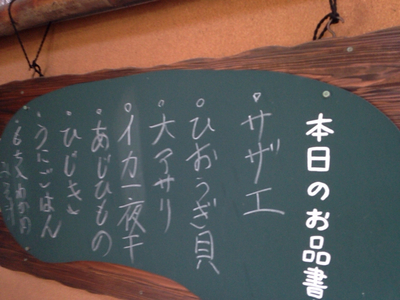 本日のお品書
サザエ
ひおうぎ貝
大アサリ
イカ一夜干
あじひもの
ひじき
うにごはん